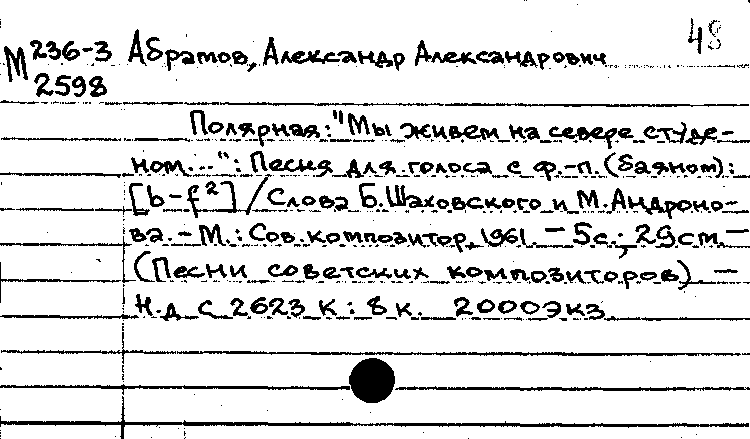 48
М 236-3 Абрамов, Александр Александрович
2598
Полярная: "Мы живем на севере студе-
ном...": Песня для голоса с ф.-п. (баяном):
[b-f²] / Слова Б. Шаховского и М. Андроно-
ва. - М.: Сов. композитор, 1961. - 5с.; 29см. -
(Песни советских композиторов). -
Н.д с 2623 к: 8к. 2000экз.